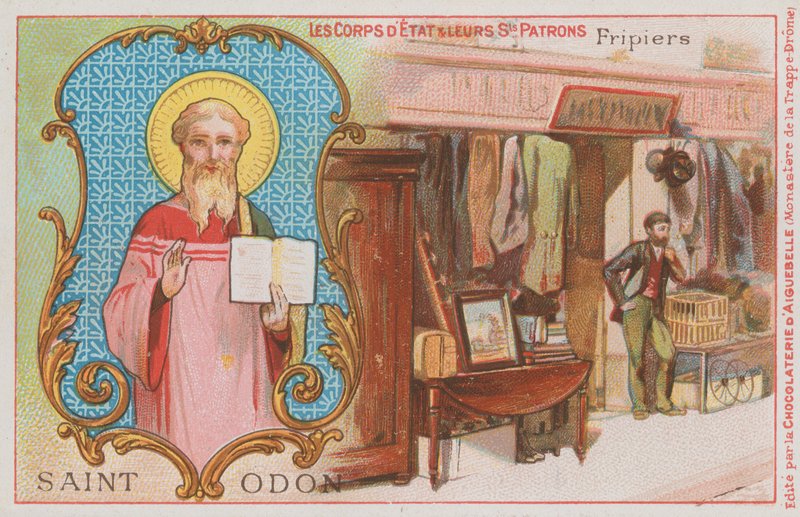 LES CORPS D'ÉTAT & LEURS Sts PATRONS
Fripiers
SAINT ODON
Edité par la CHOCOLATERIE D'AIGUEBELLE (Monastère de la Trappe-Drôme)